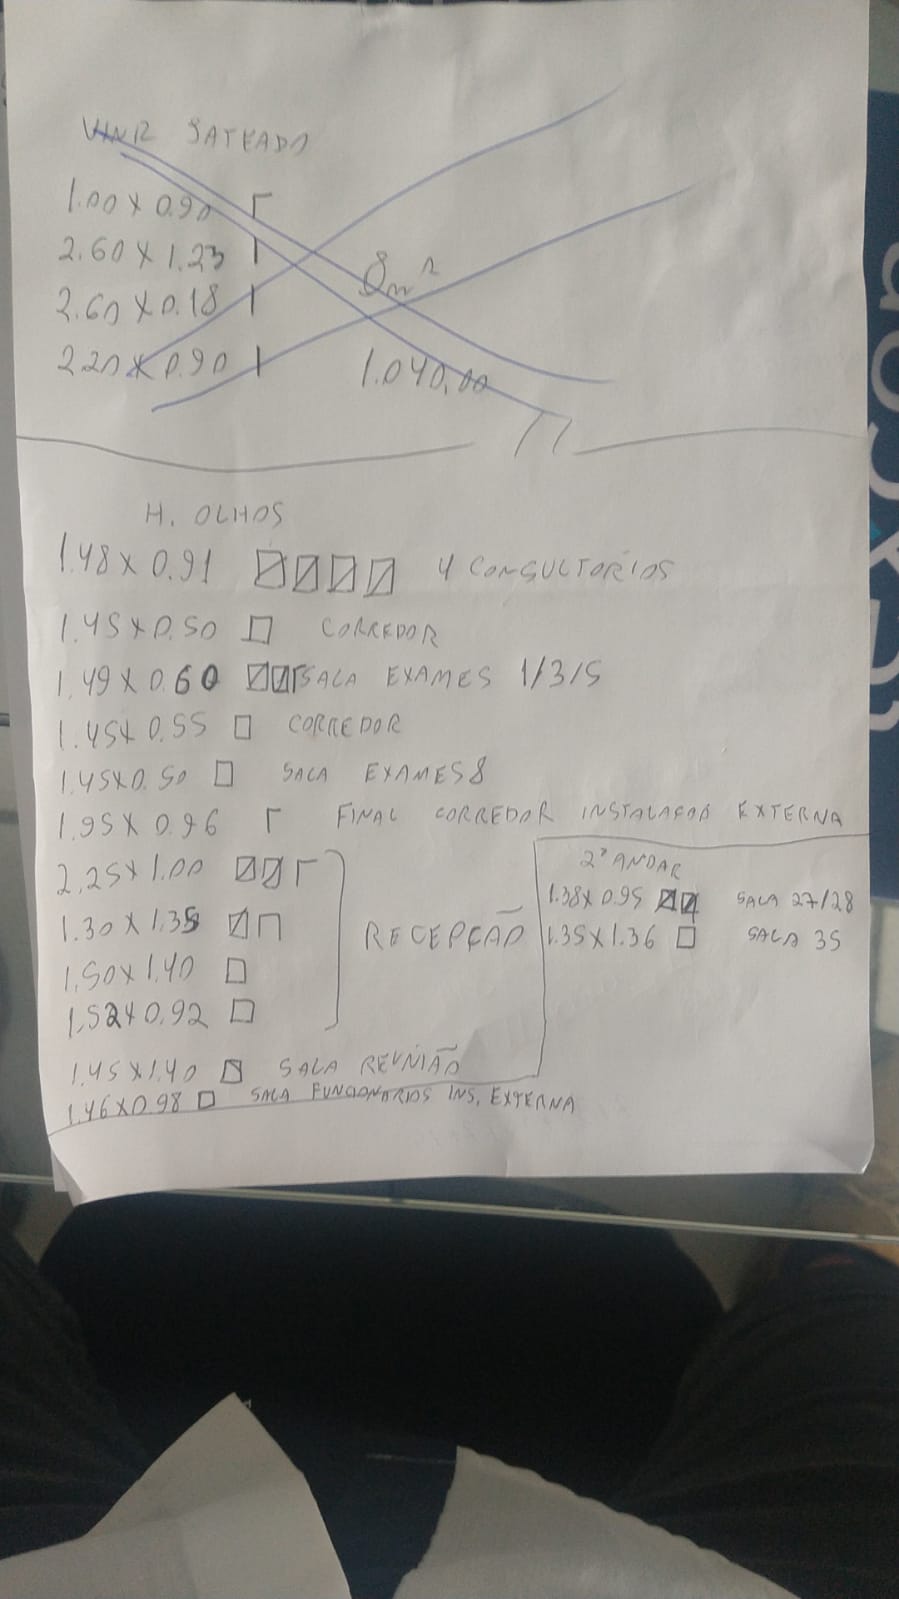 VINR SATEADO
1.00 X 0.90
2.60 X 1.23
2.60 X 0.18
2.20 X 0.90
8m²
1.040,00
H. OLHOS
1.48 X 0.91 4 CONSULTORIOS
1.45 X 0.50 CORREDOR
1.49 X 0.60 SALA EXAMES 1/3/5
1.45 X 0.55 CORREDOR
1.45 X 0.50 SALA EXAMES 8
1.95 X 0.96 FINAL CORREDOR INSTALAÇOÃ EXTERNA
2,25 X 1.00
1.30 X 1.35
1,50 X 1.40
1,52 X 0.92
RECEPÇÃO
2º ANDAR
1.38 X 0.95 SALA 27/28
1.35 X 1.36 SALA 35
1.45 X 1.40 SALA REUNIÃO
1.46 X 0.98 SALA FUNCIONARIOS INS, EXTERNA